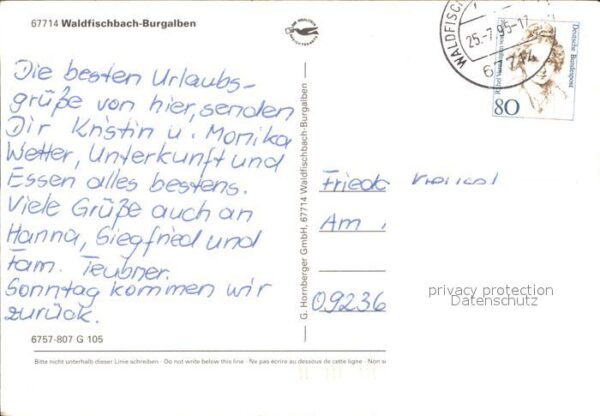 67714 Waldfischbach-Burgalben
Die besten Urlaubs-
grüße von hier, senden
Dir Kristin u. Monika
Wetter, Unterkunft und
Essen alles bestens.
Viele Grüße auch an
Hanna, Siegfried und
Fam. Teubner.
Sonntag kommen wir
zurück.
6757-807 G 105
G. Hornberger GmbH, 67714 Waldfischbach-Burgalben
WALDFISCH
25.-7.95-17
67714
Deutsche Bundespost
80
Am
09236
privacy protection
Datenschutz
Bitte nicht unterhalb dieser Linie schreiben · Do not write below this line · Ne pas écrire au dessous de cette ligne · Non s